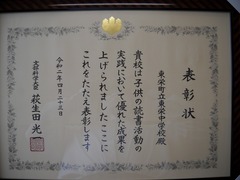 表彰状
東栄町立東栄中学校殿
貴校は子供の読書活動の
実践において優れた成果を
上げられましたここに
これをたたえ表彰します
令和二年四月二十三日
文部科学大臣 萩生田光一